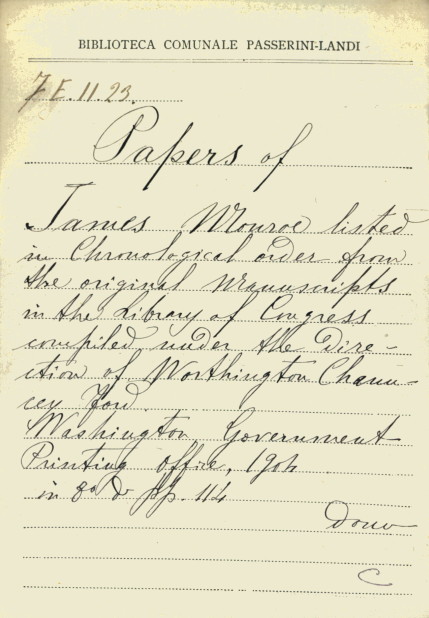 BIBLIOTECA COMUNALE PASSERINI-LANDI
7 E. 11. 23.
Papers of
James Monroe listed
in Chronological order from
the original Manuscripts
in the Library of Congress
compiled under the Dire-
ction of Worthington Chaun-
cey Ford.
Washington Government
Printing Office, 1904
in 8º d pp. 114
Dono
C